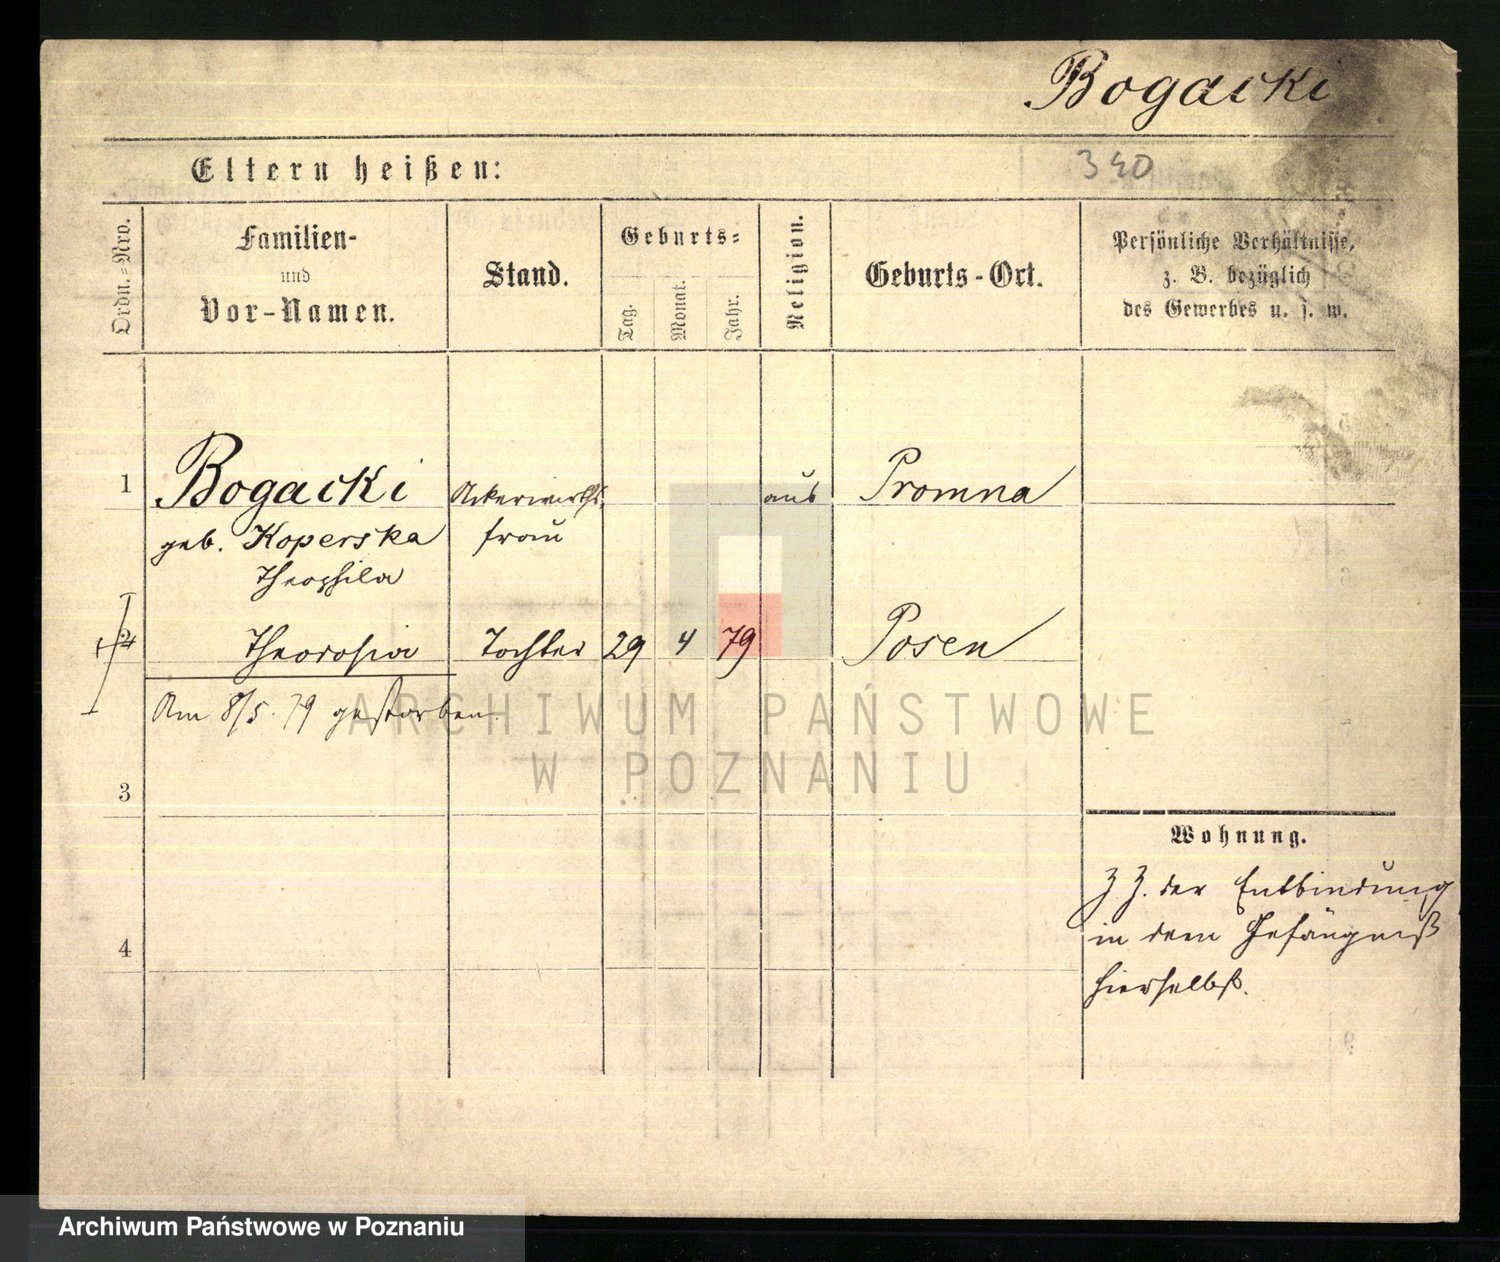 Bogacki
Eltern heißen:
340
Ordn.=Nro.
Familien-
und
Vor-Namen.
Stand.
Geburts=
Tag.
Monat.
Jahr.
Religion.
Geburts-Ort.
Persönliche Verhältnisse,
z. B. bezüglich
des Gewerbes u. s. w.
1 Bogacki Ackerwirths- aus Promna
geb. Koperska frau
Theophila
2 Theodosia Tochter 29 4 79 Posen
Am 8/5. 79 gestorben.
ARCHIWUM PAŃSTWOWE
W POZNANIU
3
Wohnung.
z Z. der Entbindung
in dem Gefängniß
hierselbst.
4
Archiwum Państwowe w Poznaniu